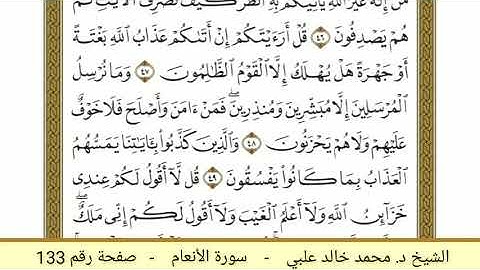 مَّنْ إِلَٰهٌ غَيْرُ ٱللَّهِ يَأْتِيكُم بِهِ ٱنظُرْ كَيْفَ نُصَرِّفُ ٱلْأَيَٰتِ ثُمَّ
هُمْ يَصْدِفُونَ ٤٦ قُلْ أَرَءَيْتَكُمْ إِنْ أَتَىٰكُمْ عَذَابُ ٱللَّهِ بَغْتَةً
أَوْ جَهْرَةً هَلْ يُهْلَكُ إِلَّا ٱلْقَوْمُ ٱلظَّٰلِمُونَ ٤٧ وَمَا نُرْسِلُ
ٱلْمُرْسَلِينَ إِلَّا مُبَشِّرِينَ وَمُنذِرِينَ ۖ فَمَنْ ءَامَنَ وَأَصْلَحَ فَلَا خَوْفٌ
عَلَيْهِمْ وَلَا هُمْ يَحْزَنُونَ ٤٨ وَٱلَّذِينَ كَذَّبُوا۟ بِـَٔايَٰتِنَا يَمَسُّهُمُ
ٱلْعَذَابُ بِمَا كَانُوا۟ يَفْسُقُونَ ٤٩ قُل لَّآ أَقُولُ لَكُمْ عِندِى
خَزَآئِنُ ٱللَّهِ وَلَآ أَعْلَمُ ٱلْغَيْبَ وَلَآ أَقُولُ لَكُمْ إِنِّى مَلَكٌ ۖ
الشيخ د. محمد خالد علبي - سورة الأنعام - صفحة رقم 133